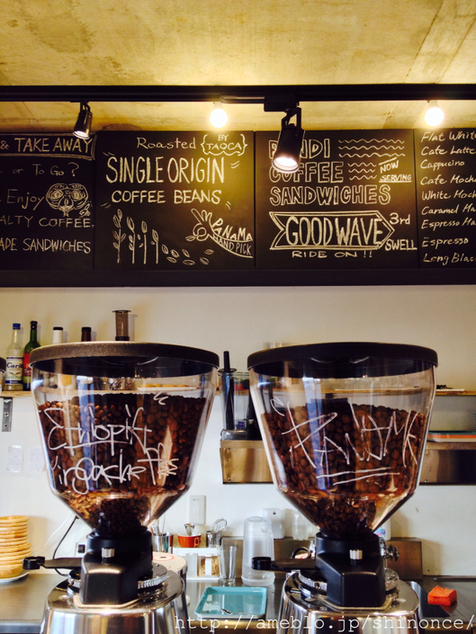 & TAKE AWAY
or To Go?
Enjoy
ALTY COFFEE
ADE SANDWICHES
Roasted BY {TAOCA}
SINGLE ORIGIN
COFFEE BEANS
PANAMA
HAND PICK
COFFEE
SANDWICHES
NOW
SERVING
GOOD WAVE
3rd
SWELL
RIDE ON!!
Flat Whit
Cafe Latte
Cappucino
Cafe Mocha
White Mo
Caramel Ma
Espresso Ma
Espresso
Long Blac
Ethiopia
Yirgacheffe
PANAMA
http://ameblo.jp/shinonce